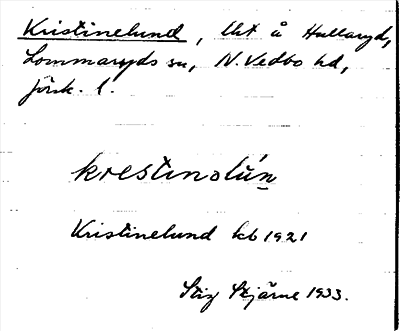 Kristinelund, lht å Hullaryd,
Lommaryds sn, N. Vedbo hd,
Jönk. l.
krestinəlún
Kristinelund kb 1921
Stig Stjärne 1933.